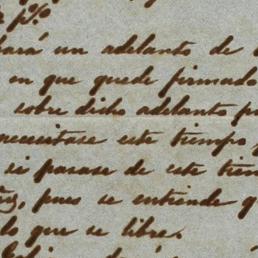 p%
ará un adelanto de
en que quede firmado
sobre dicho adelanto p
necesitase este tiempo
si pasase de este tiem
pues se entiende q
lo que se libre.